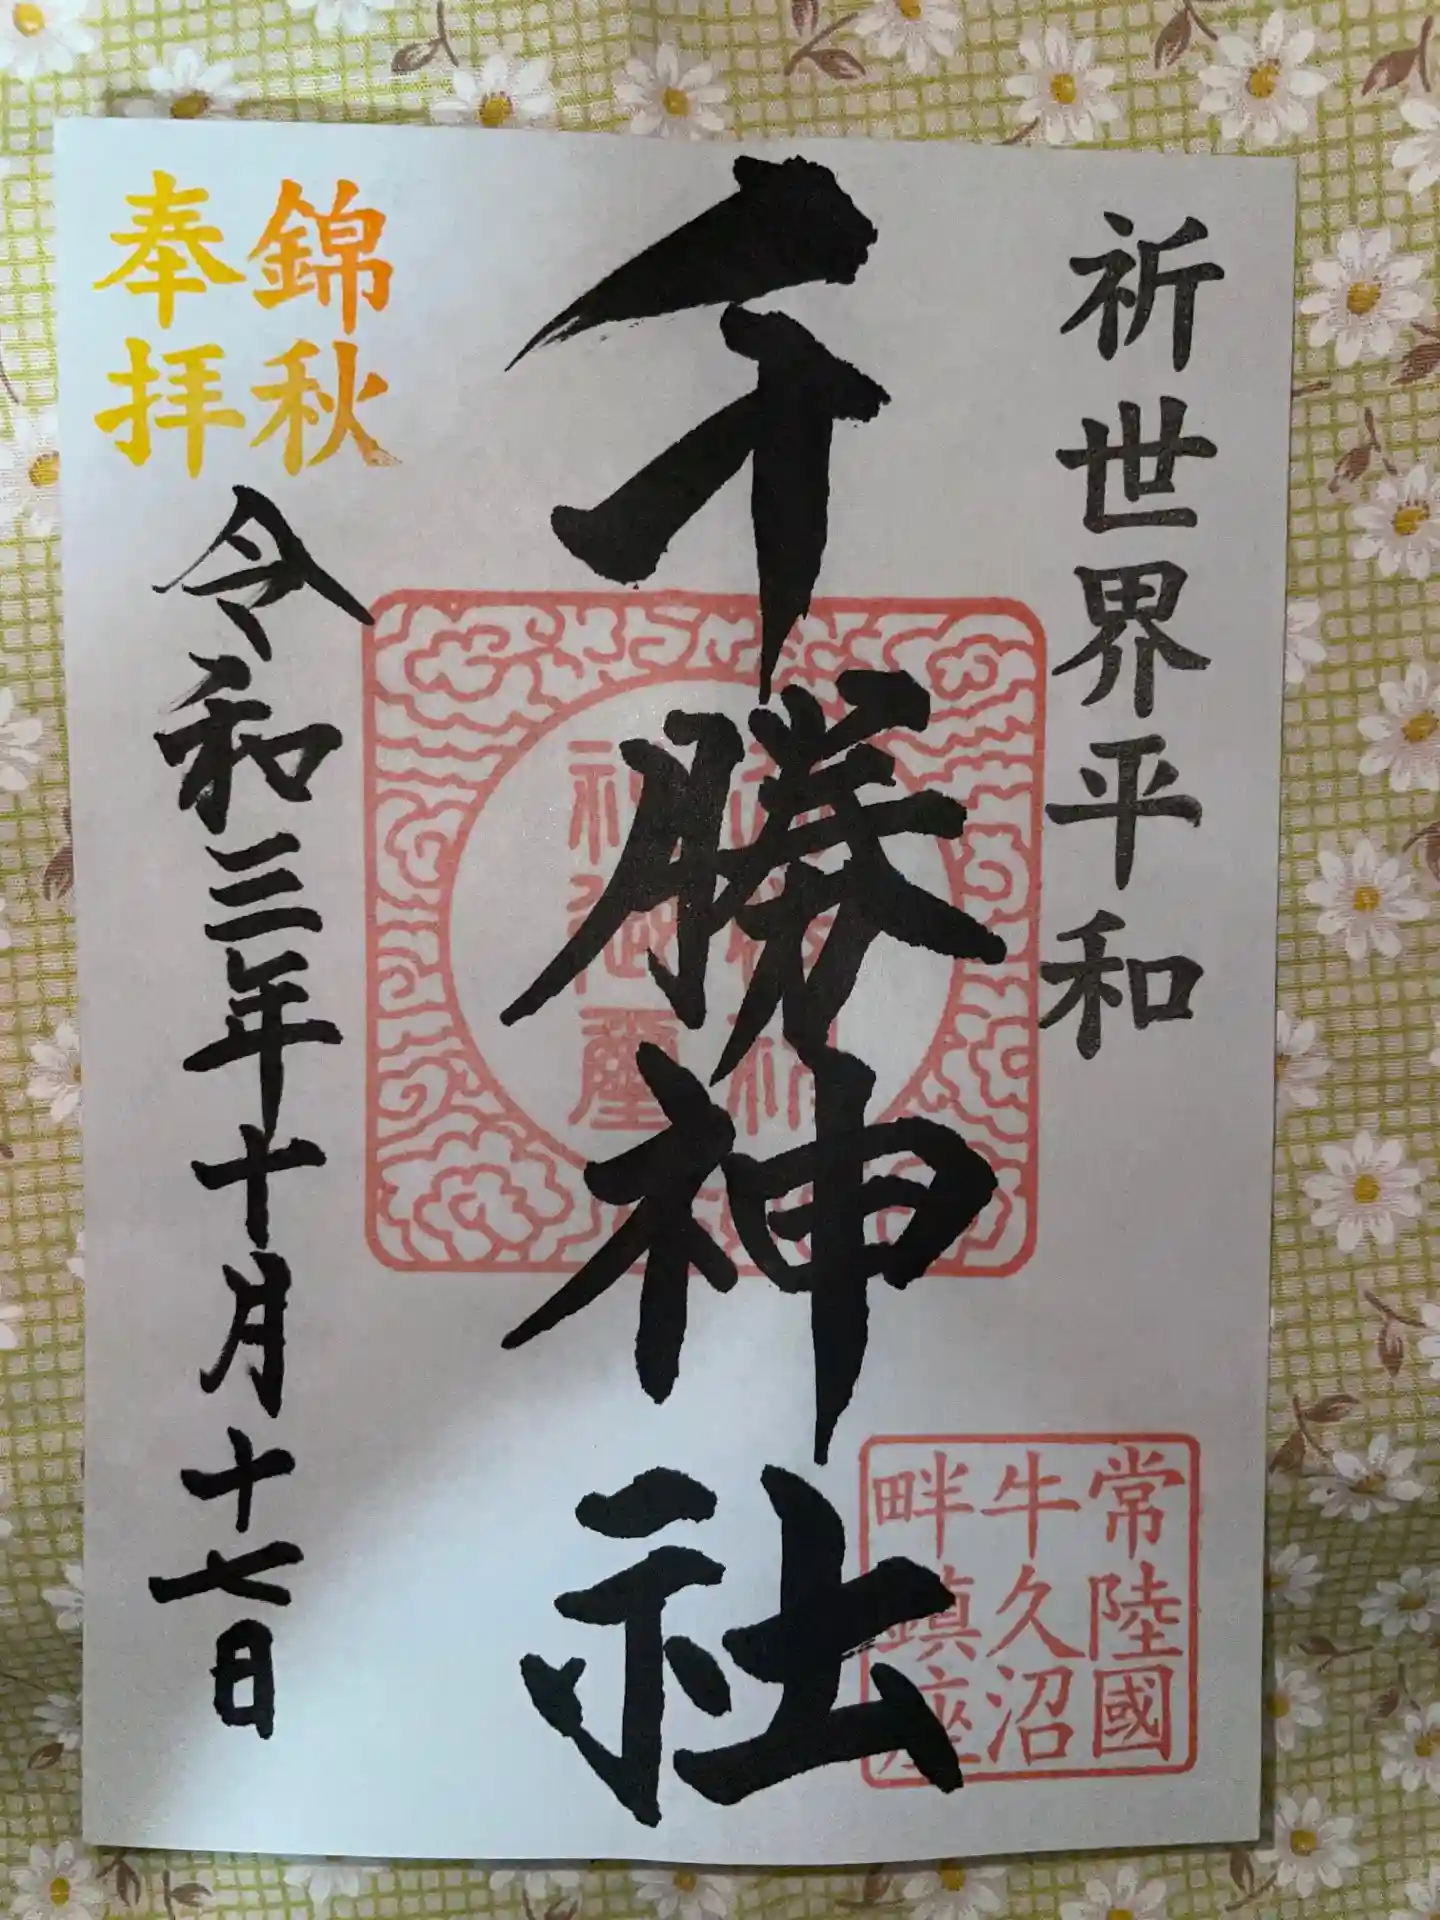 祈世界平和
千勝神社
錦秋
奉拝
令和三年十月十七日
常陸國
牛久沼
畔鎮座